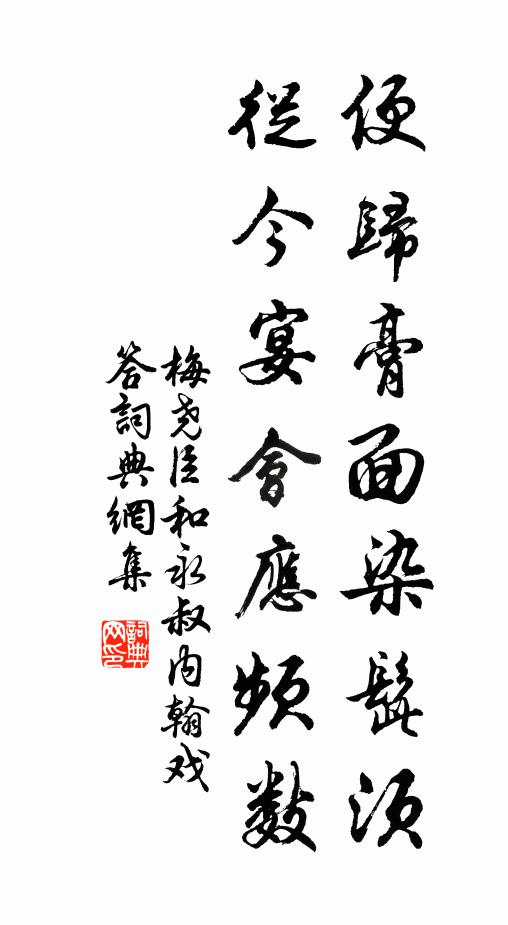 便歸膏面染髭須
從今宴會應頻數
梅堯臣和永叔内翰戏
答詞典網集
詞典网印